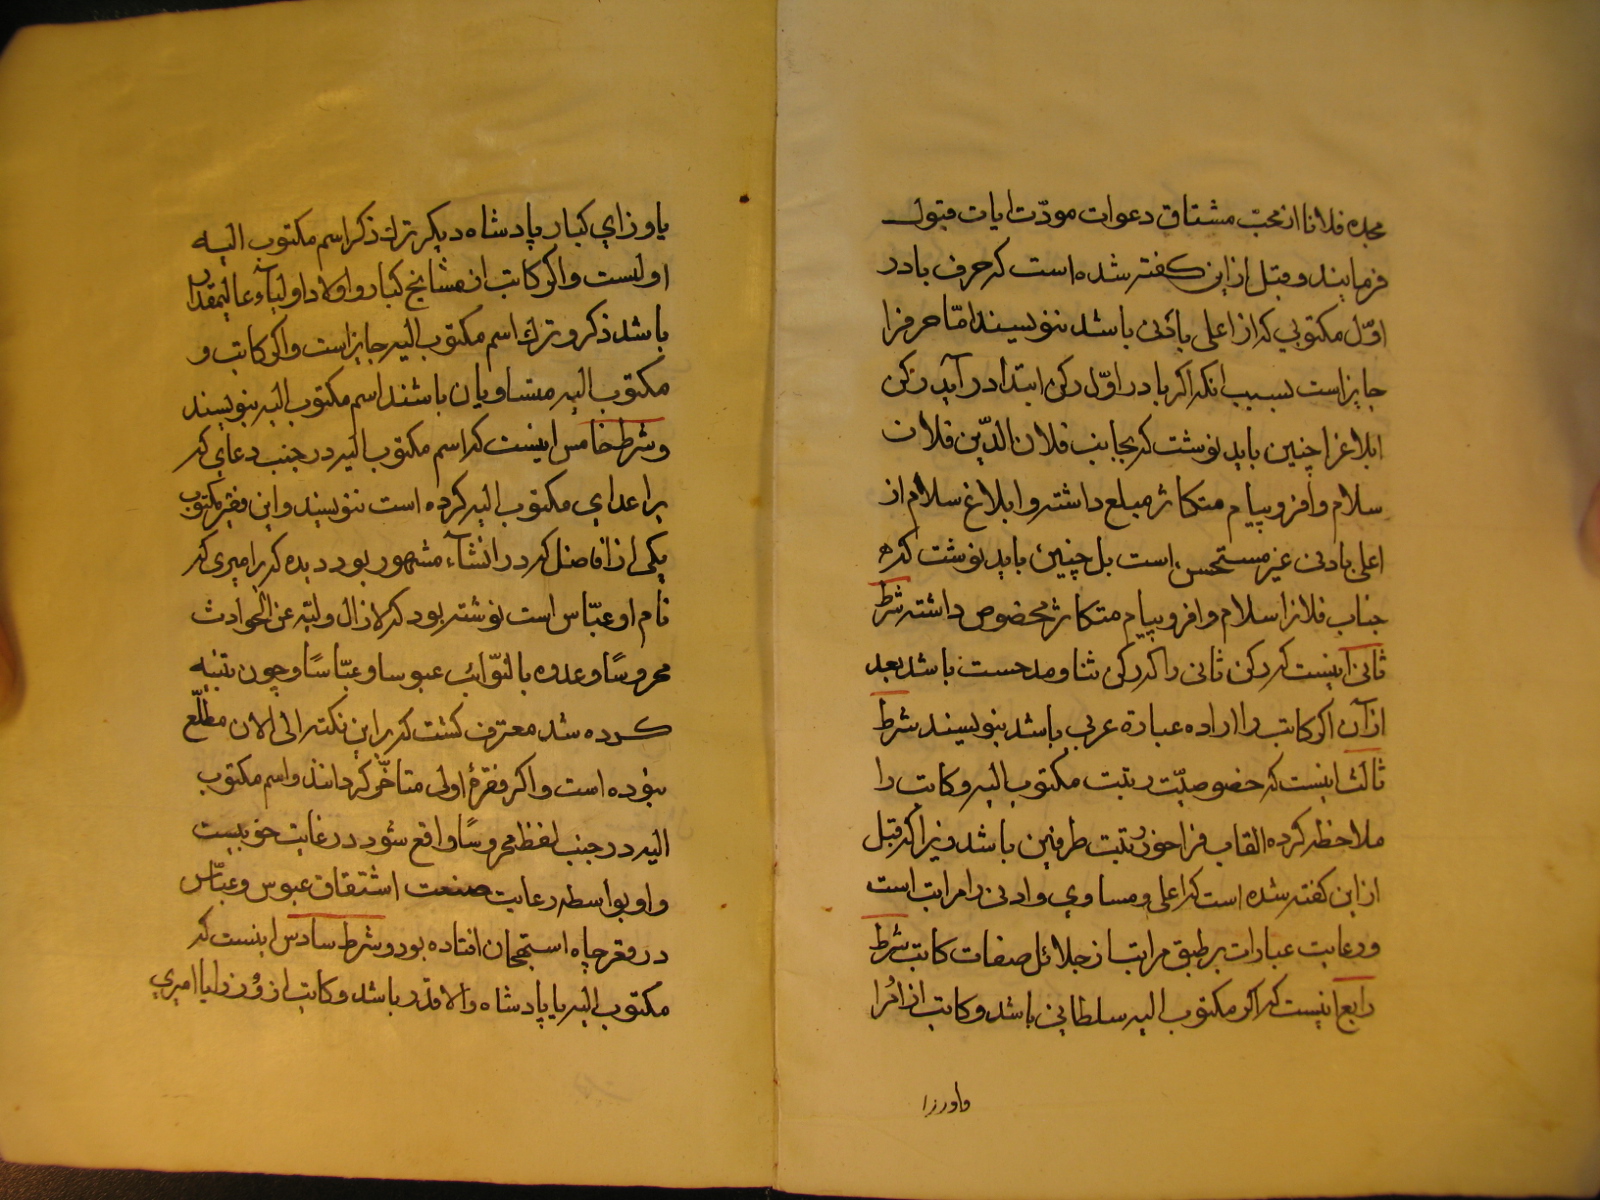 مجده فلانا از محب مشتاق دعوات مودّت ایات قبول
فرمایند و قبل ازین کفته شده است که حرف با در
اوّل مکتوبی که از اعلی بادنی باشد ننویسند امّا حرف را
جایز است بسبب انکه اکر با در اوّل رکن ابتدا در آید رکن
ابلاغ را چنین باید نوشت که بجانب فلان الدّین فلان
سلام وافر و پیام متکاثر مبلع داشته و ابلاغ سلام از
اعلی بادنی غیر مستحسن است بل چنین باید نوشت که
جناب فلانرا سلام وافر و پیام متکاثر مخصوص داشته شرط
ثانی اینست که رکن ثانی را که رکن ثنا و مدحست باشد بعد
از آن اکر کاتب را اراده عبارة عربی باشد بنویسند شرط
ثالث اینست که خصوصیّت رتبت مکتوب الیه و کاتب را
ملاحظه کرده القاب فراخور رتبت طرفین باشد زیرا که قبل
ازین کفته شده است که اعلی و مساوی و ادنی را مراتب است
و رعایت عبارات بر طبق مراتب از جلائل صفات کاتب شرط
رابع اینست که اکر مکتوب الیه سلطانی باشد و کاتب از امُرا
یا وزرای کبار پادشاه دیکر ترك ذکر اسم مکتوب الیه
اولیست و اکر کاتب از مشایخ کبار و اولاد اولیآء عالیمقدار
باشد ذکر و ترك اسم مکتوب الیه جایز است و اکر کاتب و
مکتوب الیه متساویان باشند اسم مکتوب الیه بنویسند
و شرط خامس اینست که اسم مکتوب الیه در جنب دعای که
بر اعدای مکتوب الیه کرده است ننویسند و این فقیر مکتوب
یکی از افاضل که در انشآء مشهور بود دیده که بر امیری که
نام او عبّاس است نوشته بود که لازال ولیّه عن الحوادث
محروسًا و عدوه بالنوّائب عبوسا و عبّاسًا و چون تنبیه
کرده شد معترف کشت که برین نکته الی الان مطلّع
نبوده است و اکر فقرهٔ اولی متاخّر کردانند و اسم مکتوب
الیه در جنب لفظ محروسًا واقع شود در غایت خوبیست
و او بواسطه رعایت صنعت اشتقاق عبوس و عبّاس
در قعر چاه استهجان افتاده بود و شرط سادس اینست که
مکتوب الیه با پادشاه والاقدر باشد و کاتب از وُزرا یا امیری